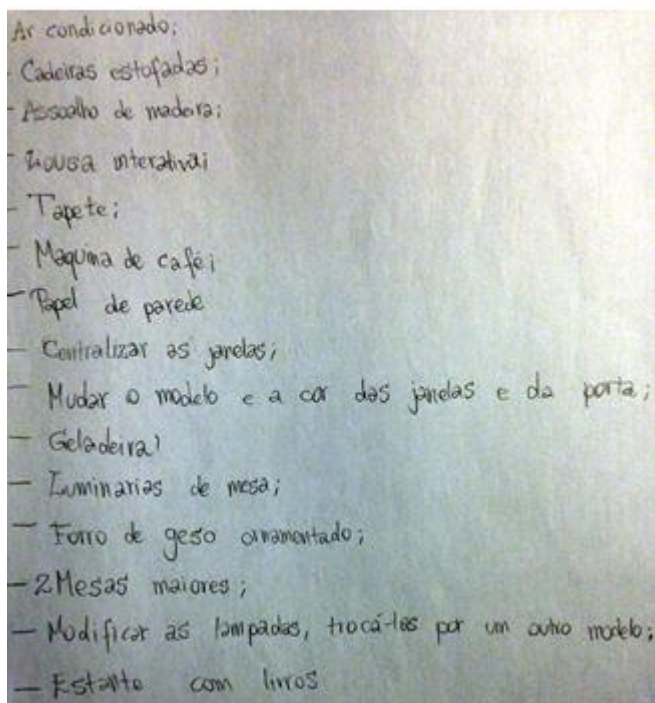 Ar condicionado;
- Cadeiras estofadas;
- Assoalho de madeira;
- Lousa interativa;
- Tapete;
- Maquina de café;
- Papel de parede
- Centralizar as janelas;
- Mudar o modelo e a cor das janelas e da porta;
- Geladeira;
- Luminarias de mesa;
- Forro de geso ornamentado;
- 2 Mesas maiores;
- Modificar as lampadas, trocá-las por um outro modelo;
- Estante com livros